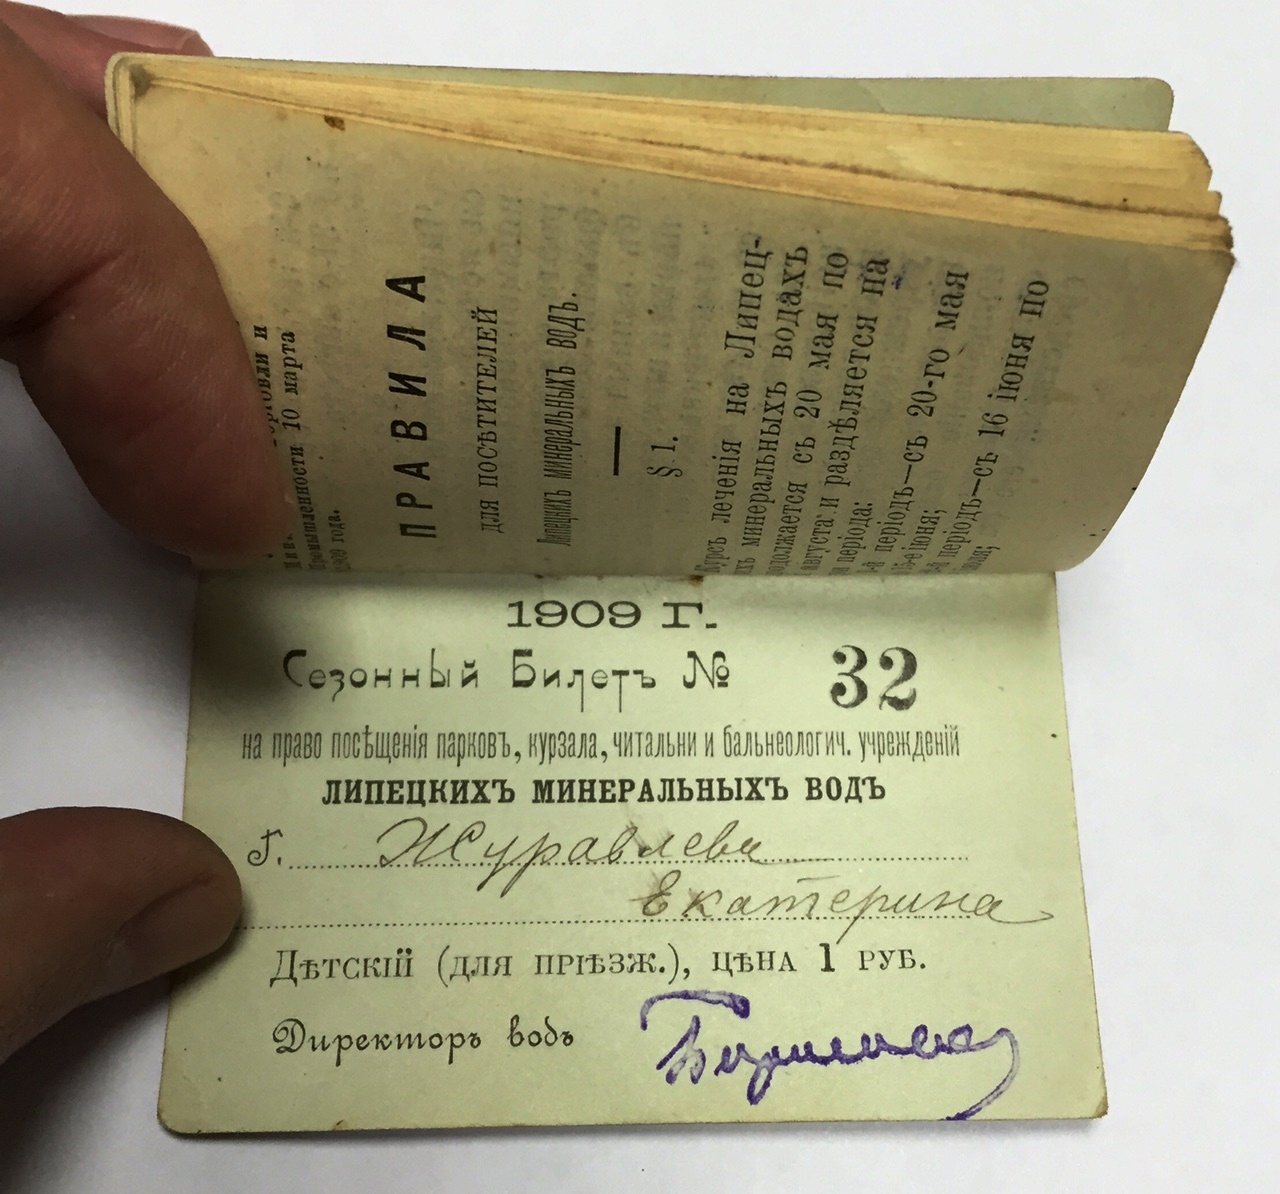 орговли и
Промышленности 10 марта
1909 года.
ПРАВИЛА
ДЛЯ ПОСѢТИТЕЛЕЙ
Липецкихъ минеральныхъ водъ.
§ 1.
Курсъ леченія на Липец-
ихъ минеральныхъ водахъ
одолжается съ 20 мая по
августа и раздѣляется на
а періода:
й періодъ—съ 20-го мая
15-е іюня;
й періодъ—съ 16 іюня по
юля;
1909 Г.
Сезонный Билетъ № 32
на право посѣщенія парковъ, курзала, читальни и бальнеологич. учрежденій
ЛИПЕЦКИХЪ МИНЕРАЛЬНЫХЪ ВОДЪ
Г. Журавлева
Екатерина
Дѣтскій (для пріѣзж.), цѣна 1 руб.
Директоръ водъ